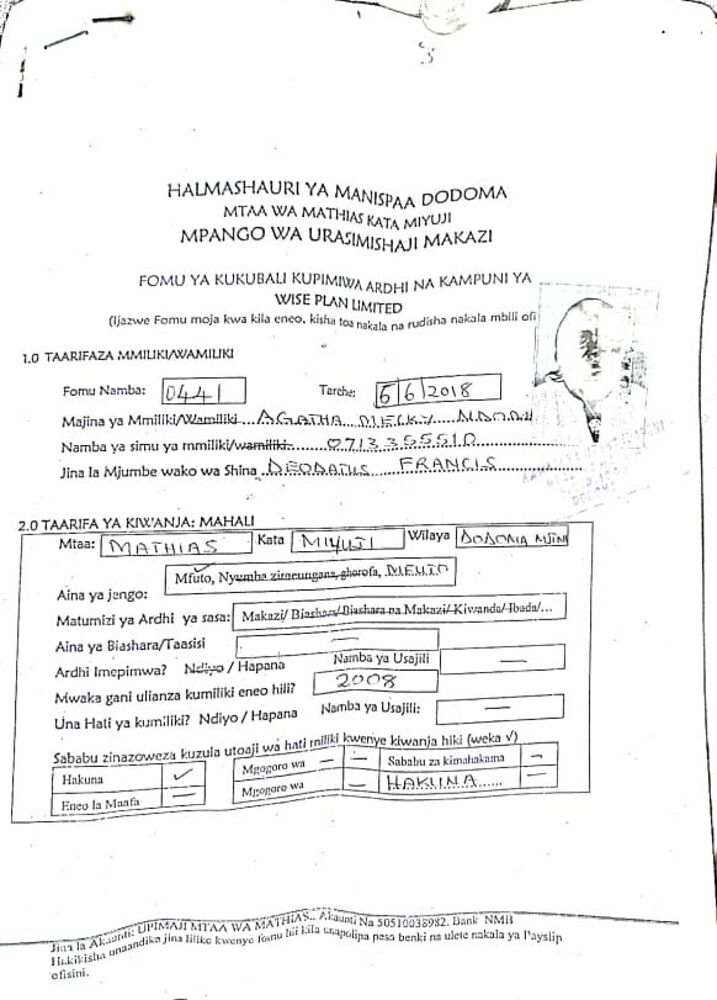 HALMASHAURI YA MANISPAA DODOMA
MTAA WA MATHIAS KATA MIYUJI
MPANGO WA URASIMISHAJI MAKAZI
FOMU YA KUKUBALI KUPIMIWA ARDHI NA KAMPUNI YA
WISE PLAN LIMITED
(Ijazwe Fomu moja kwa kila eneo, kisha toa nakala na rudisha nakala mbili ofi
1.0 TAARIFAZA MMILIKI/WAMILIKI
Fomu Namba: 0441 Tarehe: 6/6/2018
Majina ya Mmiliki/Wamiliki AGATHA
Namba ya simu ya mmiliki/wamiliki 0713355510
Jina la Mjumbe wako wa Shina DEODATUS FRANCIS
2.0 TAARIFA YA KIWANJA: MAHALI
Mtaa: MATHIAS Kata MIYUJI Wilaya DODOMA MJINI
Mfuto, Nyumba zimeungana, ghorofa,
Aina ya jengo:
Matumizi ya Ardhi ya sasa: Makazi/ Biashara/Biashara na Makazi/ Kiwanda/ Ibada/...
Aina ya Biashara/Taasisi —
Ardhi Imepimwa? Ndiyo / Hapana Namba ya Usajili —
Mwaka gani ulianza kumiliki eneo hili? 2008
Una Hati ya kumiliki? Ndiyo / Hapana Namba ya Usajili: —
Sababu zinazoweza kuzuia utoaji wa hati miliki kwenye kiwanja hiki (weka √)
Hakuna ✓ Mgogoro wa — — Sababu za kimahakama —
Eneo la Maafa — Mgogoro wa — HAKUNA...... —
Jina la Akaunti: UPIMAJI MTAA WA MATHIAS., Akaunti Na 50510038982. Bank NMB
Hakikisha unaandika jina liliko kwenye fomu hii kila unapolipa pesa benki na ulete nakala ya Payslip
ofisini.